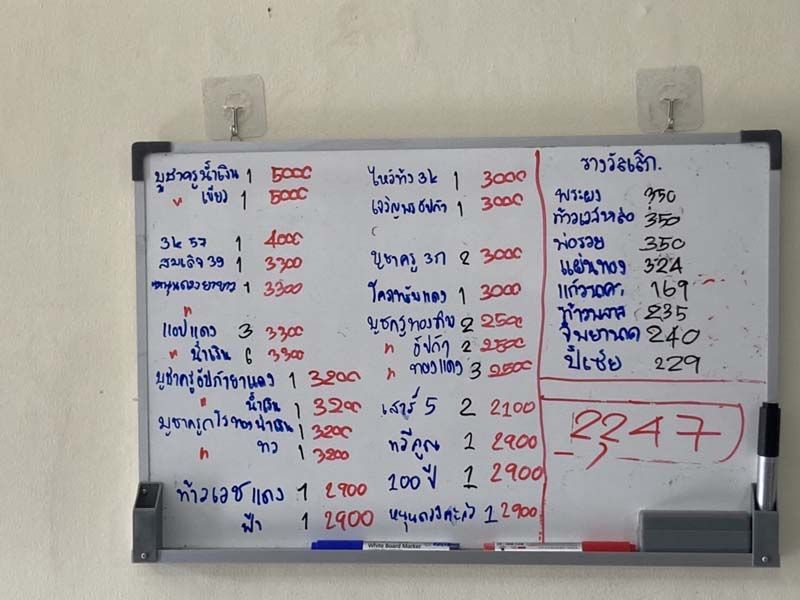 บูชาครูน้ำเงิน 1 5000
" เขียว 1 5000
3k 57 1 4000
สมเด็จ 39 1 3300
1 3300
"
แอปแดง 3 3300
" น้ำเงิน 6 3300
บูชาครูอัปก้ายาแดง 1 3200
" น้ำเงิน 1 3200
บูชาครู น้ำเงิน 1 3200
" 1 3200
ท้าวเวชแดง 1 2900
ฟ้า 1 2900
ไหว้ข้าง 3k 1 3000
เจริญพรอัปก้า 1 3000
บูชาครู 3k 2 3000
แดง 1 3000
บูชาครูทองทิพ 2 2500
" อัปก้า 2 2500
" ทองแดง 3 2500
เสาร์ 5 2 2100
ทวีคูณ 1 2900
100 ปี 1 2900
หนุนดวงตะกั่ว 1 2900
รางวัลเล็ก.
พระผง 350
ท้าวเวสหล่อ 350
พ่อรวย 350
แผ่นทอง 324
169
235
240
ปี่เซียะ 229
2,247
White Board Marker